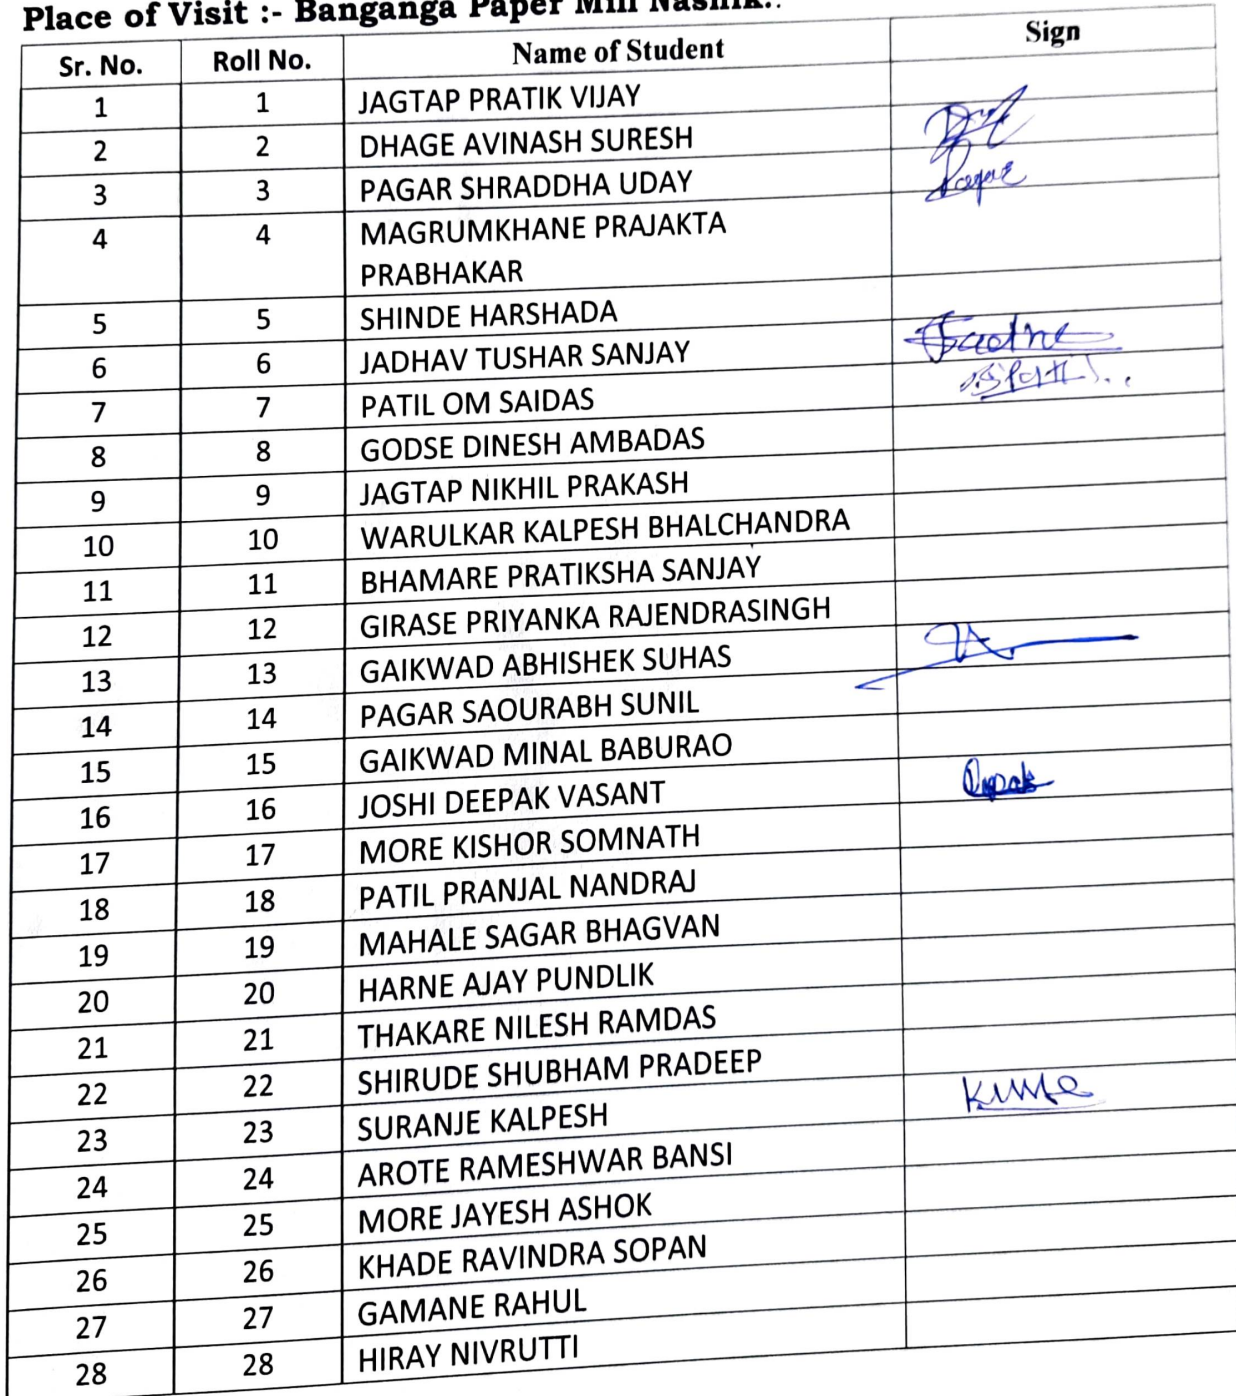 Place of Visit :- Banganga Paper Mill Nashik..
Sr. No. Roll No. Name of Student Sign
1 1 JAGTAP PRATIK VIJAY
2 2 DHAGE AVINASH SURESH
3 3 PAGAR SHRADDHA UDAY Pagar
4 4 MAGRUMKHANE PRAJAKTA
PRABHAKAR
5 5 SHINDE HARSHADA
6 6 JADHAV TUSHAR SANJAY
7 7 PATIL OM SAIDAS
8 8 GODSE DINESH AMBADAS
9 9 JAGTAP NIKHIL PRAKASH
10 10 WARULKAR KALPESH BHALCHANDRA
11 11 BHAMARE PRATIKSHA SANJAY
12 12 GIRASE PRIYANKA RAJENDRASINGH
13 13 GAIKWAD ABHISHEK SUHAS
14 14 PAGAR SAOURABH SUNIL
15 15 GAIKWAD MINAL BABURAO
16 16 JOSHI DEEPAK VASANT
17 17 MORE KISHOR SOMNATH
18 18 PATIL PRANJAL NANDRAJ
19 19 MAHALE SAGAR BHAGVAN
20 20 HARNE AJAY PUNDLIK
21 21 THAKARE NILESH RAMDAS
22 22 SHIRUDE SHUBHAM PRADEEP
23 23 SURANJE KALPESH
24 24 AROTE RAMESHWAR BANSI
25 25 MORE JAYESH ASHOK
26 26 KHADE RAVINDRA SOPAN
27 27 GAMANE RAHUL
28 28 HIRAY NIVRUTTI